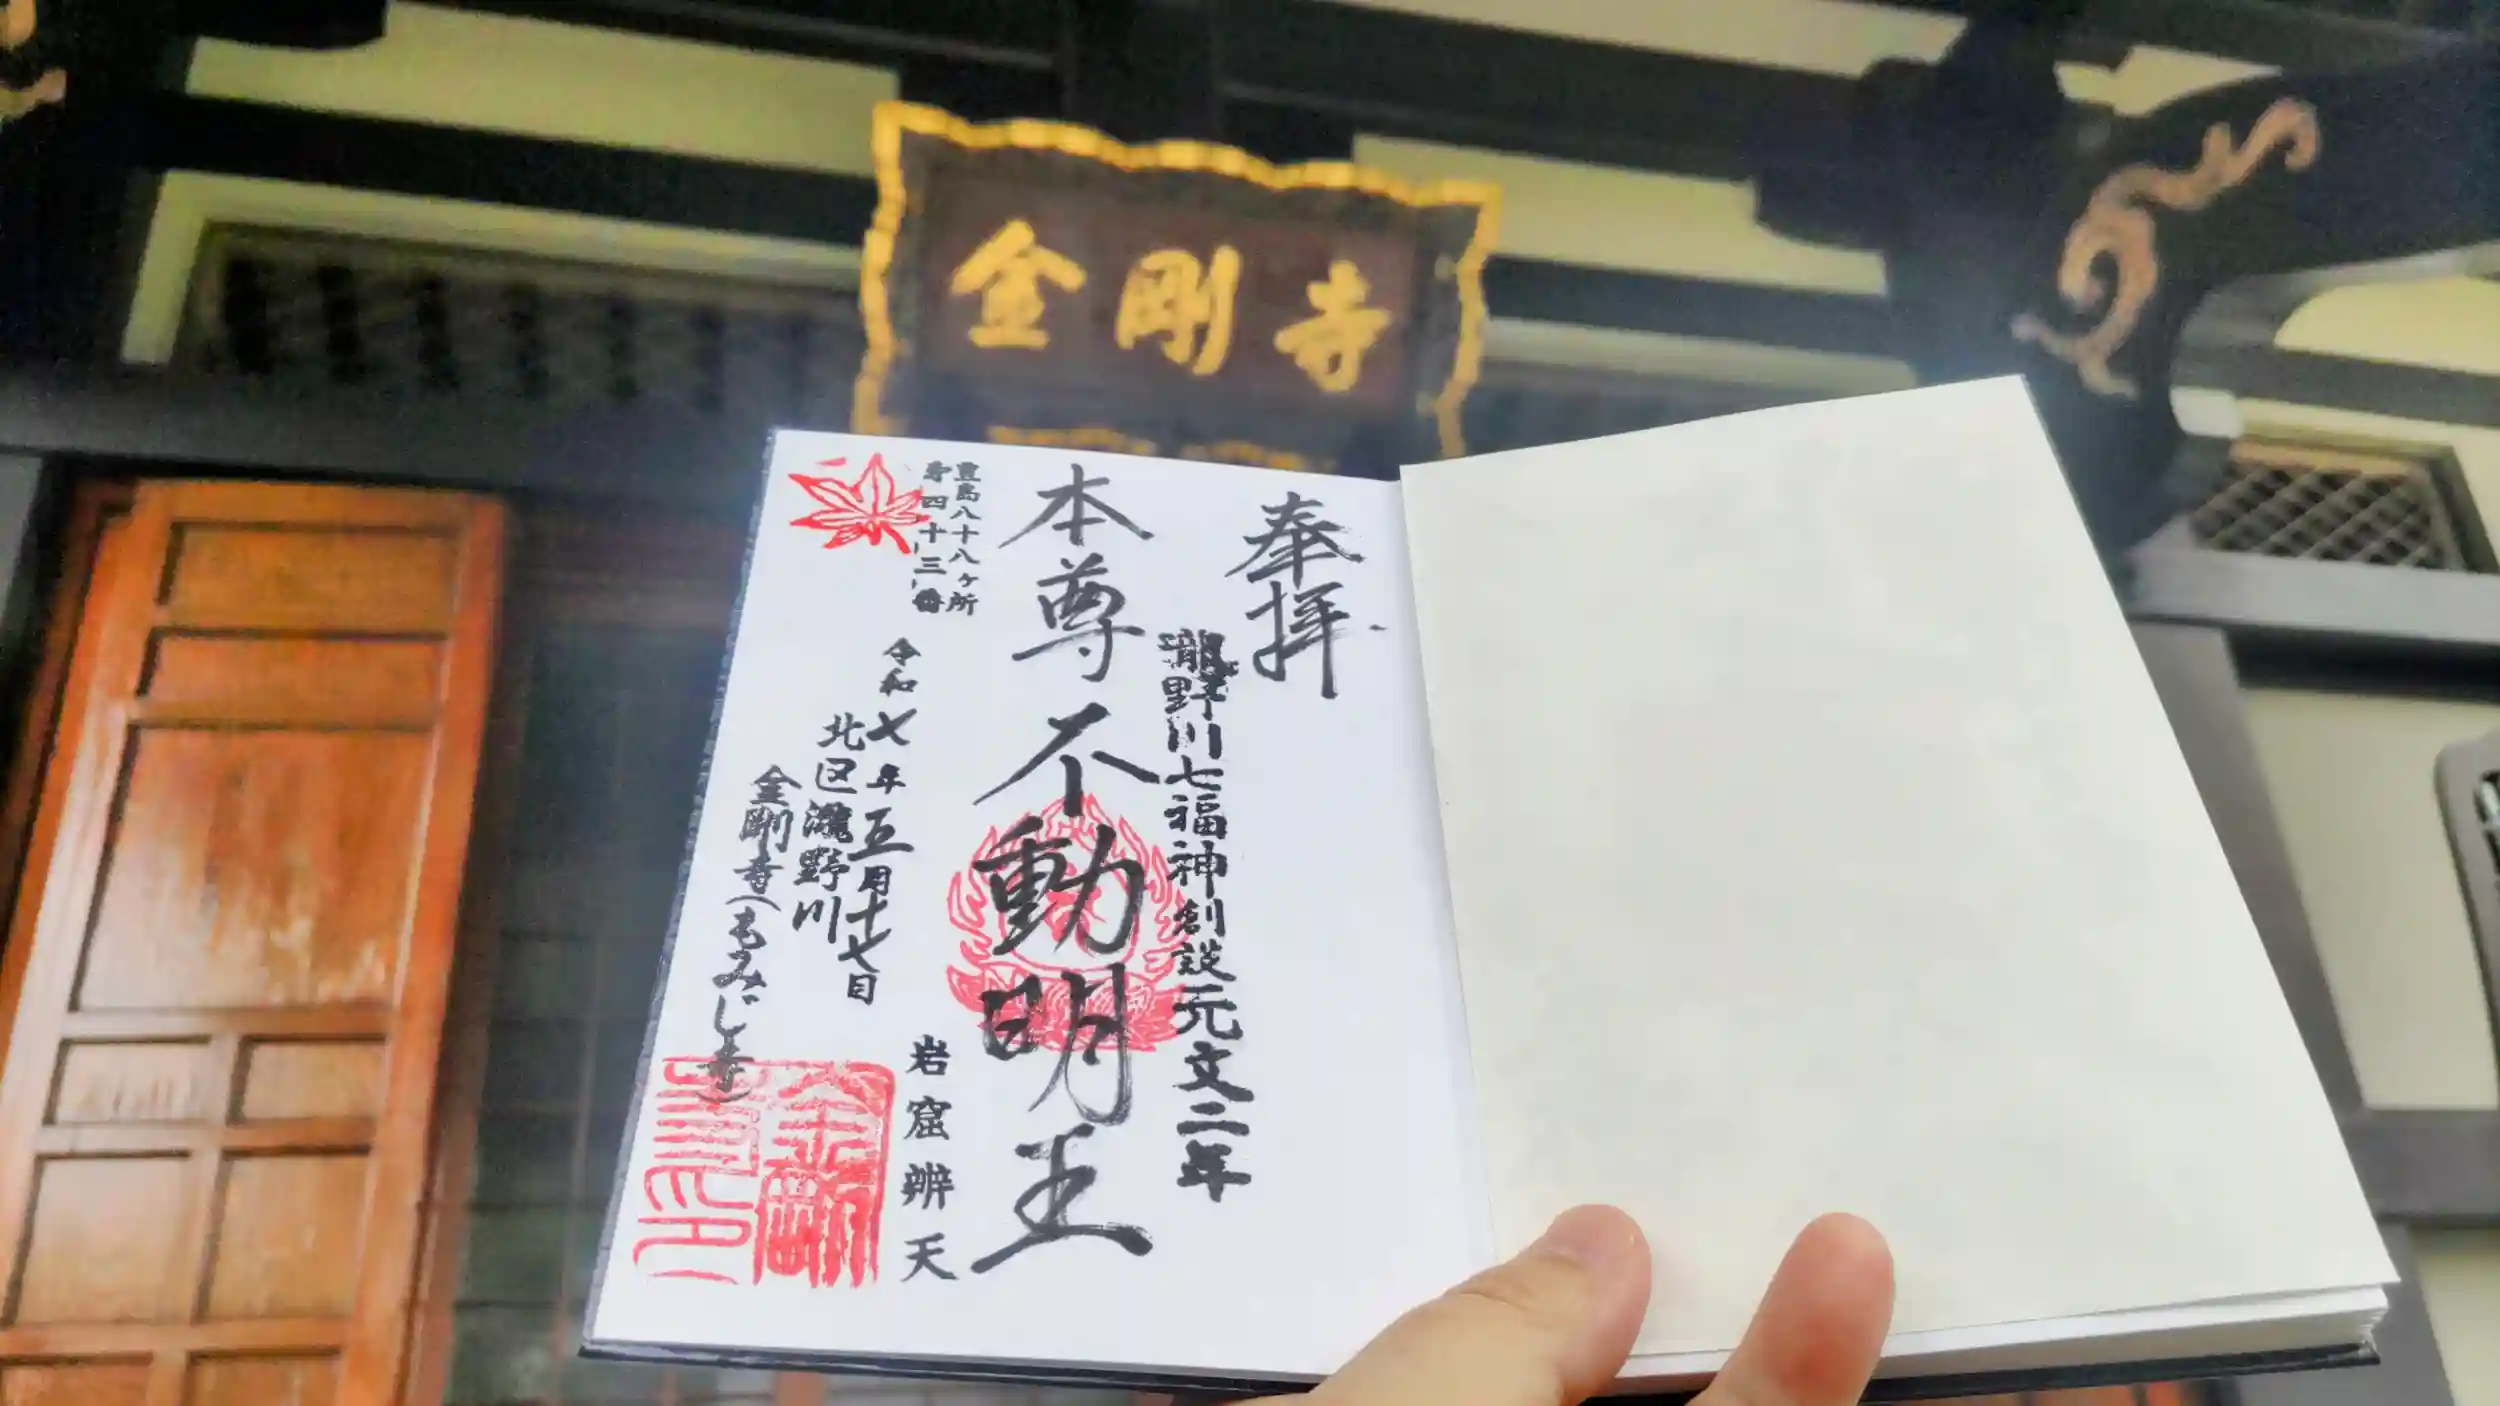 金剛寺
奉拝
瀧野川七福神創設元文二年
本尊不動明王
豊島八十八ヶ所
第四十三番
岩窟辨天
令和七年五月十七日
北区瀧野川
金剛寺(もみじ寺)